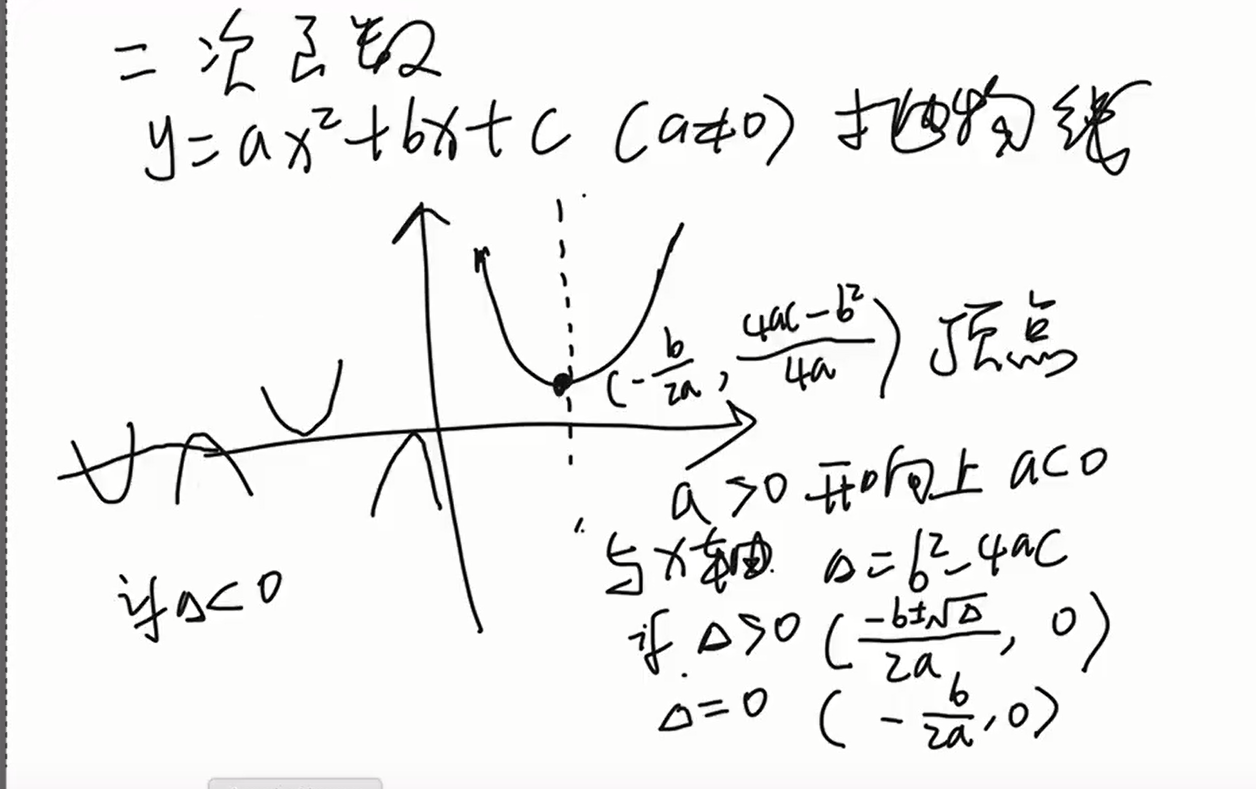 二次函数
y=ax²+bx+c (a≠0) 抛物线
(-b/2a, (4ac-b²)/4a) 顶点
a>0 开口向上 a<0
与x轴 Δ=b²-4ac
if Δ>0 ((-b±√Δ)/2a, 0)
Δ=0 (-b/2a, 0)
if Δ<0